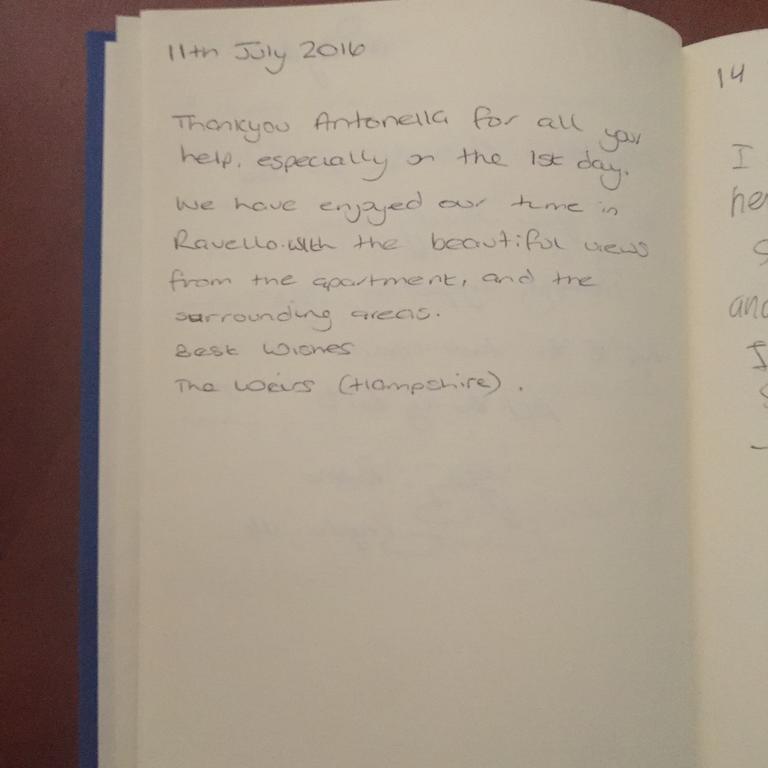 11th July 2016
Thankyou Antonella for all your
help, especially on the 1st day.
We have enjoyed our time in
Ravello. with the beautiful views
from the apartment, and the
surrounding areas.
Best Wishes
The Weirs (Hampshire).
14
I
and